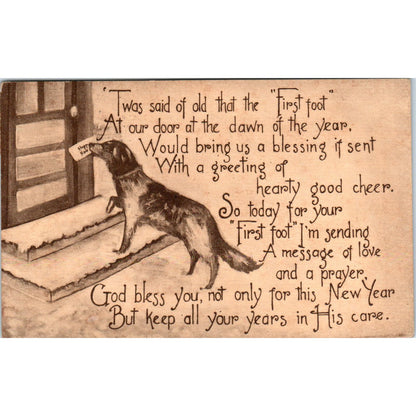 'Twas said of old that the "First foot"
At our door at the dawn of the year,
Would bring us a blessing if sent
With a greeting of
hearty good cheer.
So today for your
"First foot" I'm sending
A message of love
and a prayer,
God bless you, not only for this New Year
But keep all your years in His care.